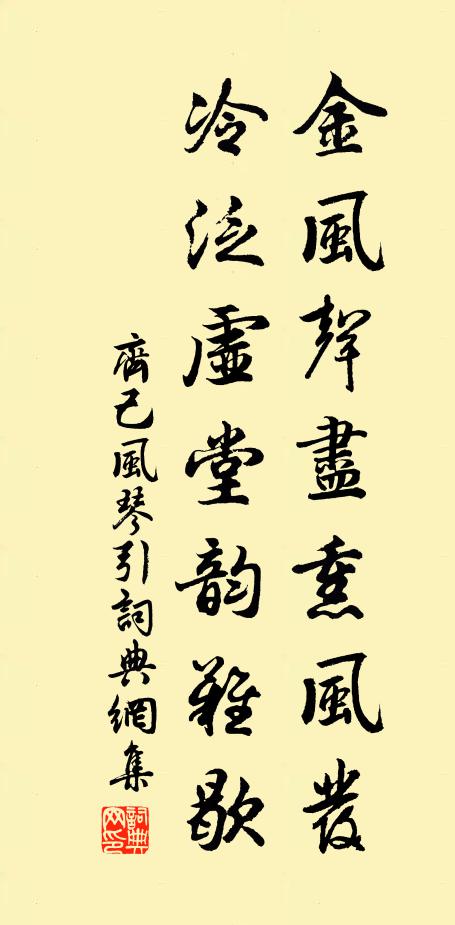 金風聲盡熏風發
冷泛虛堂韵難歇
齊己風琴引詞典網集
詞典网印